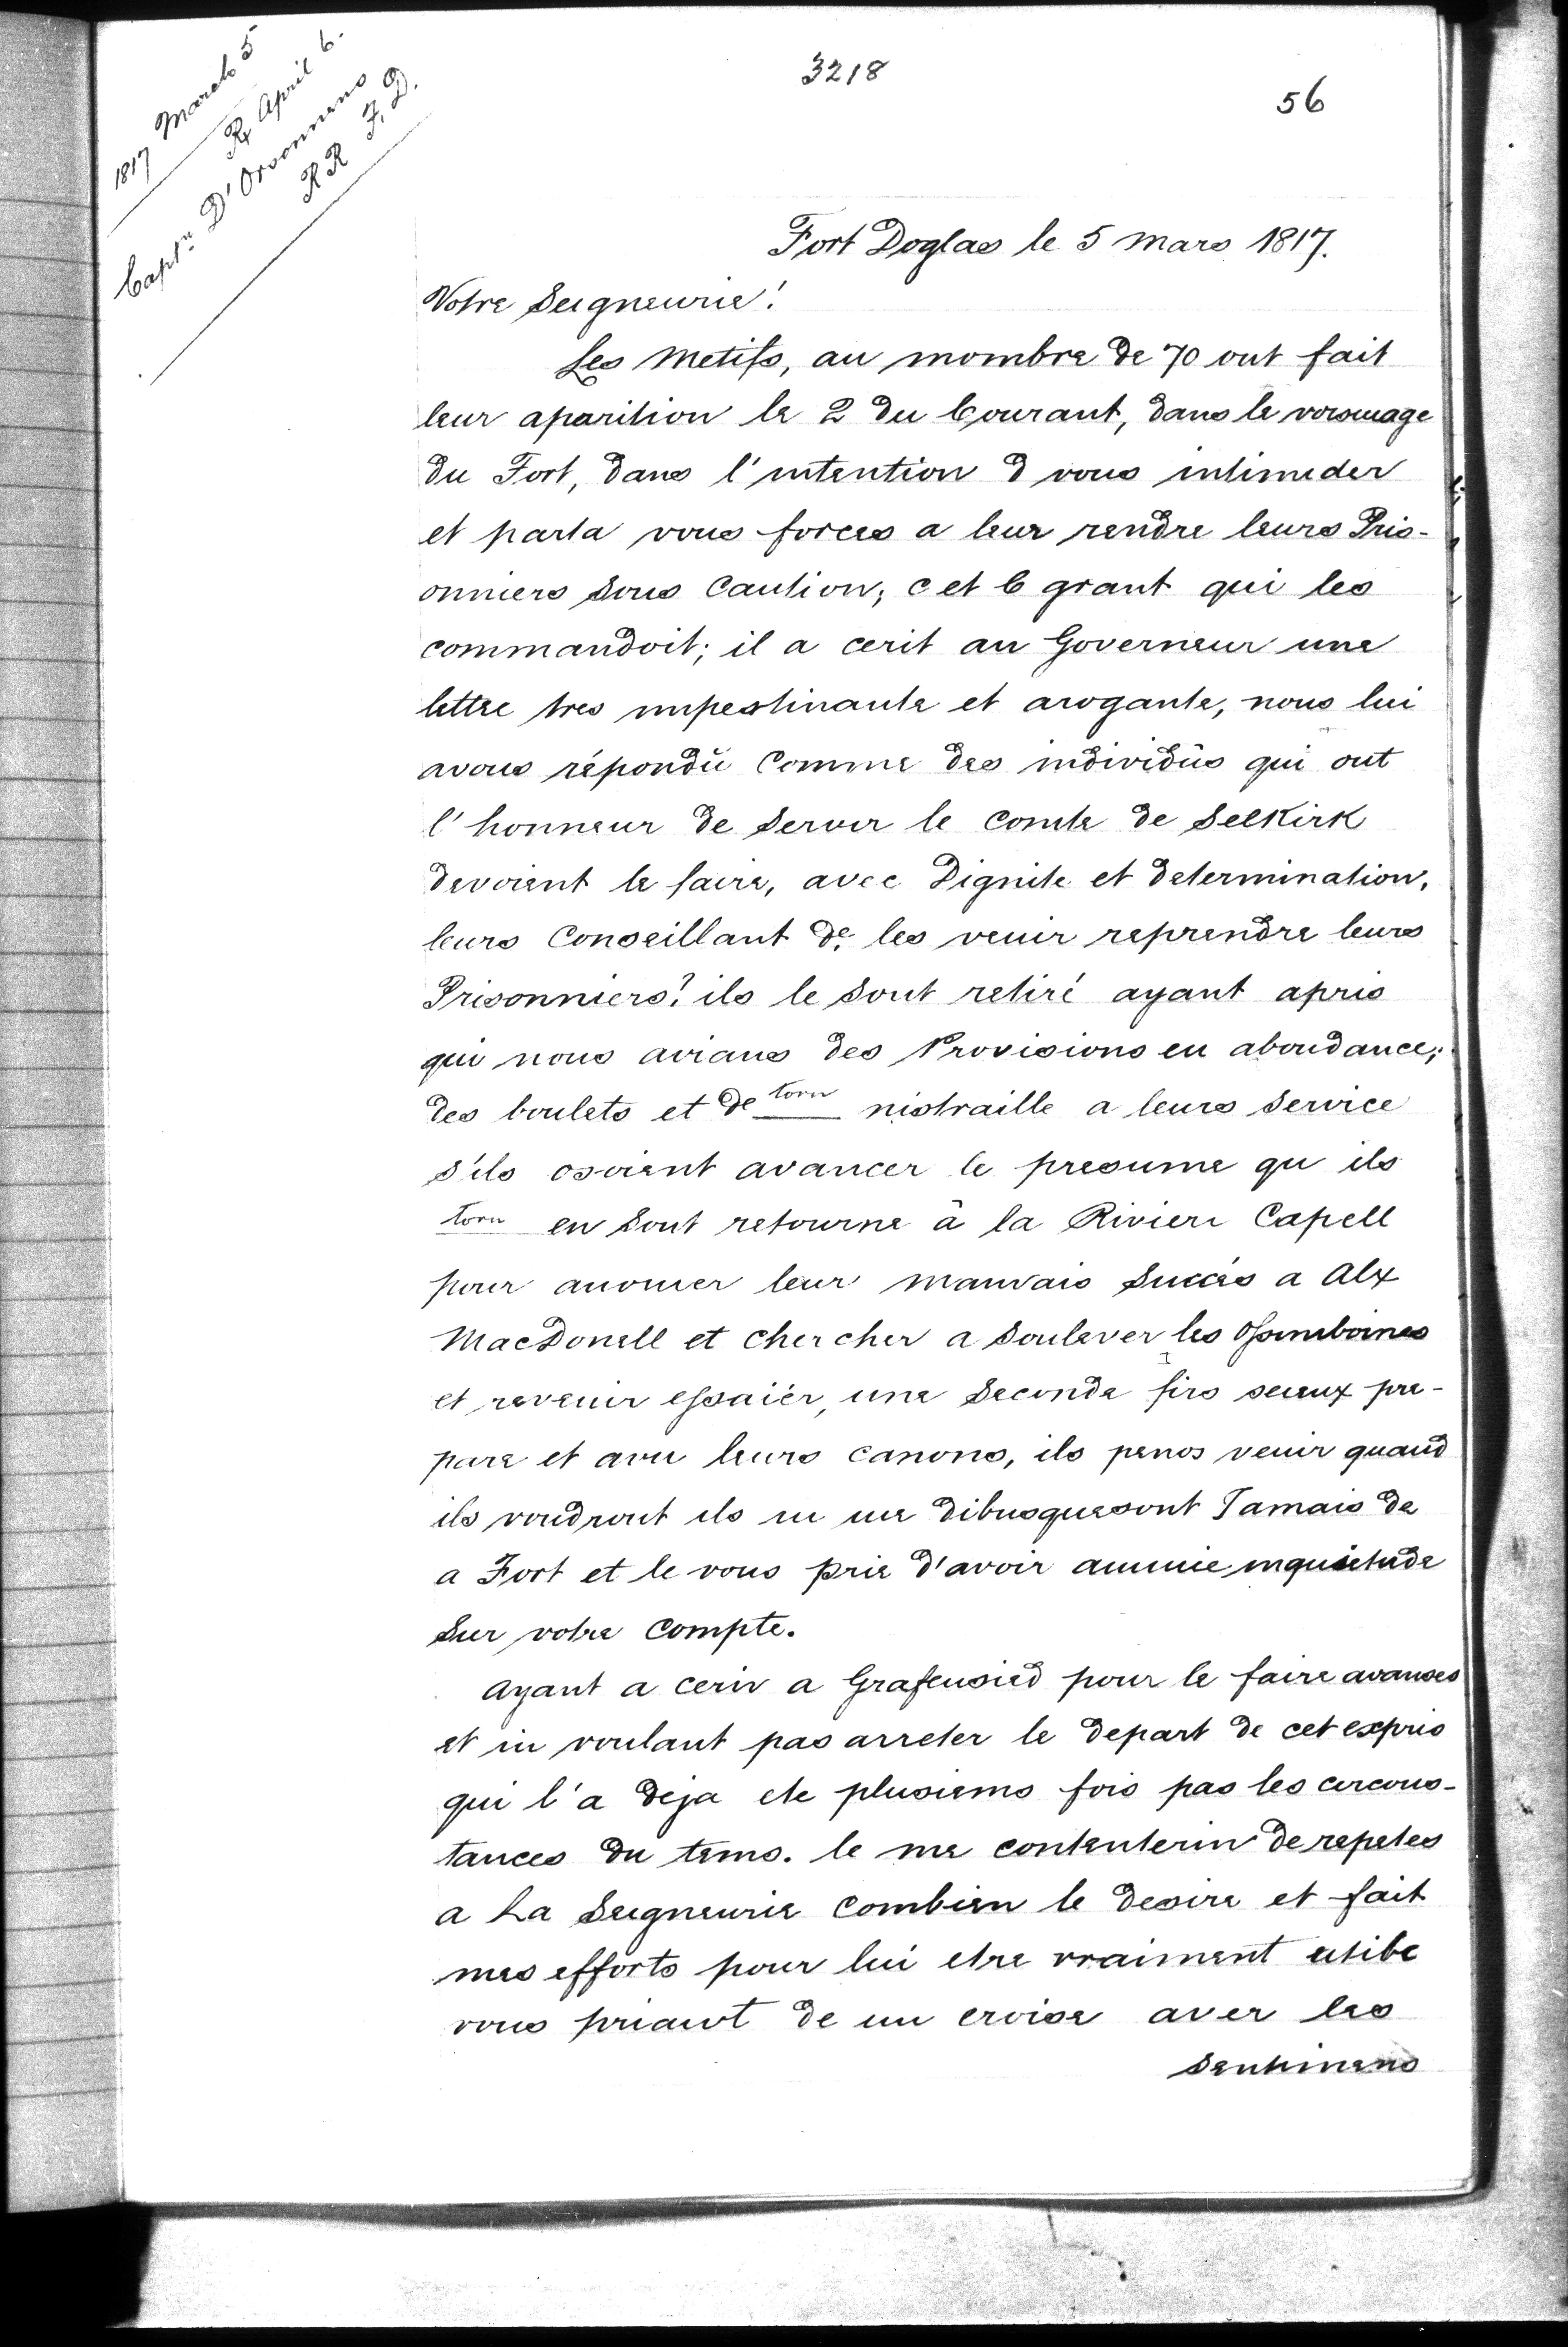 3218
56
1817 March 5
Rx April 6.
Captn D'Orsonnens
RR F.D.
Fort Doglas le 5 mars 1817.
Votre Seigneurie!
Les Metifs, au mombre de 70 out fait
leur aparition le 2 du Courant, dans le vorsinage
du Fort, dans l'intention d vous intimeder
et parla vous forces a leur rendre leurs Pris-
onniers sous Caution; c et C grant qui les
commandoit; il a cerit au Governeur une
lettre tres impestinante et arogante, nous lui
avous répondu Comme des individûs qui out
l'honneur de servir le comte de Selkirk
devoient le faire, avec Dignite et determination,
leurs Conseillant de les venir reprendre leurs
Prisonniers? ils le sout retiré ayant apris
qui nous avians des Provisions en aboudance;
des boulets et de torn nistraille a leurs service
s'ils osoient avancer le presume qu ils
torn en sout retourne à la Riviere Capell
pour anonier leur mauvais succès a Alx
MacDonell et chercher a soulever les Ossimboines
et revenir essaiér, une seconde firs seeux pre-
pare et avu leurs canons, ils penos venir quand
ils voudrout ils ni me dibusquesont Jamais de
a Fort et le vous prie d'avoir aucune inquietude
sur votre compte.
Ayant a cerir a Grafensied pour le faire avanses
et in voulant pas arreter le depart de cet expris
qui l'a deja ete plusiems fois pas les circous-
tances du tems. le me contenterin de repetes
a La Seigneurie combien le desire et fait
mes efforts pour lui etre vraiment utibe
vous priant de un croise aver les
sentimens